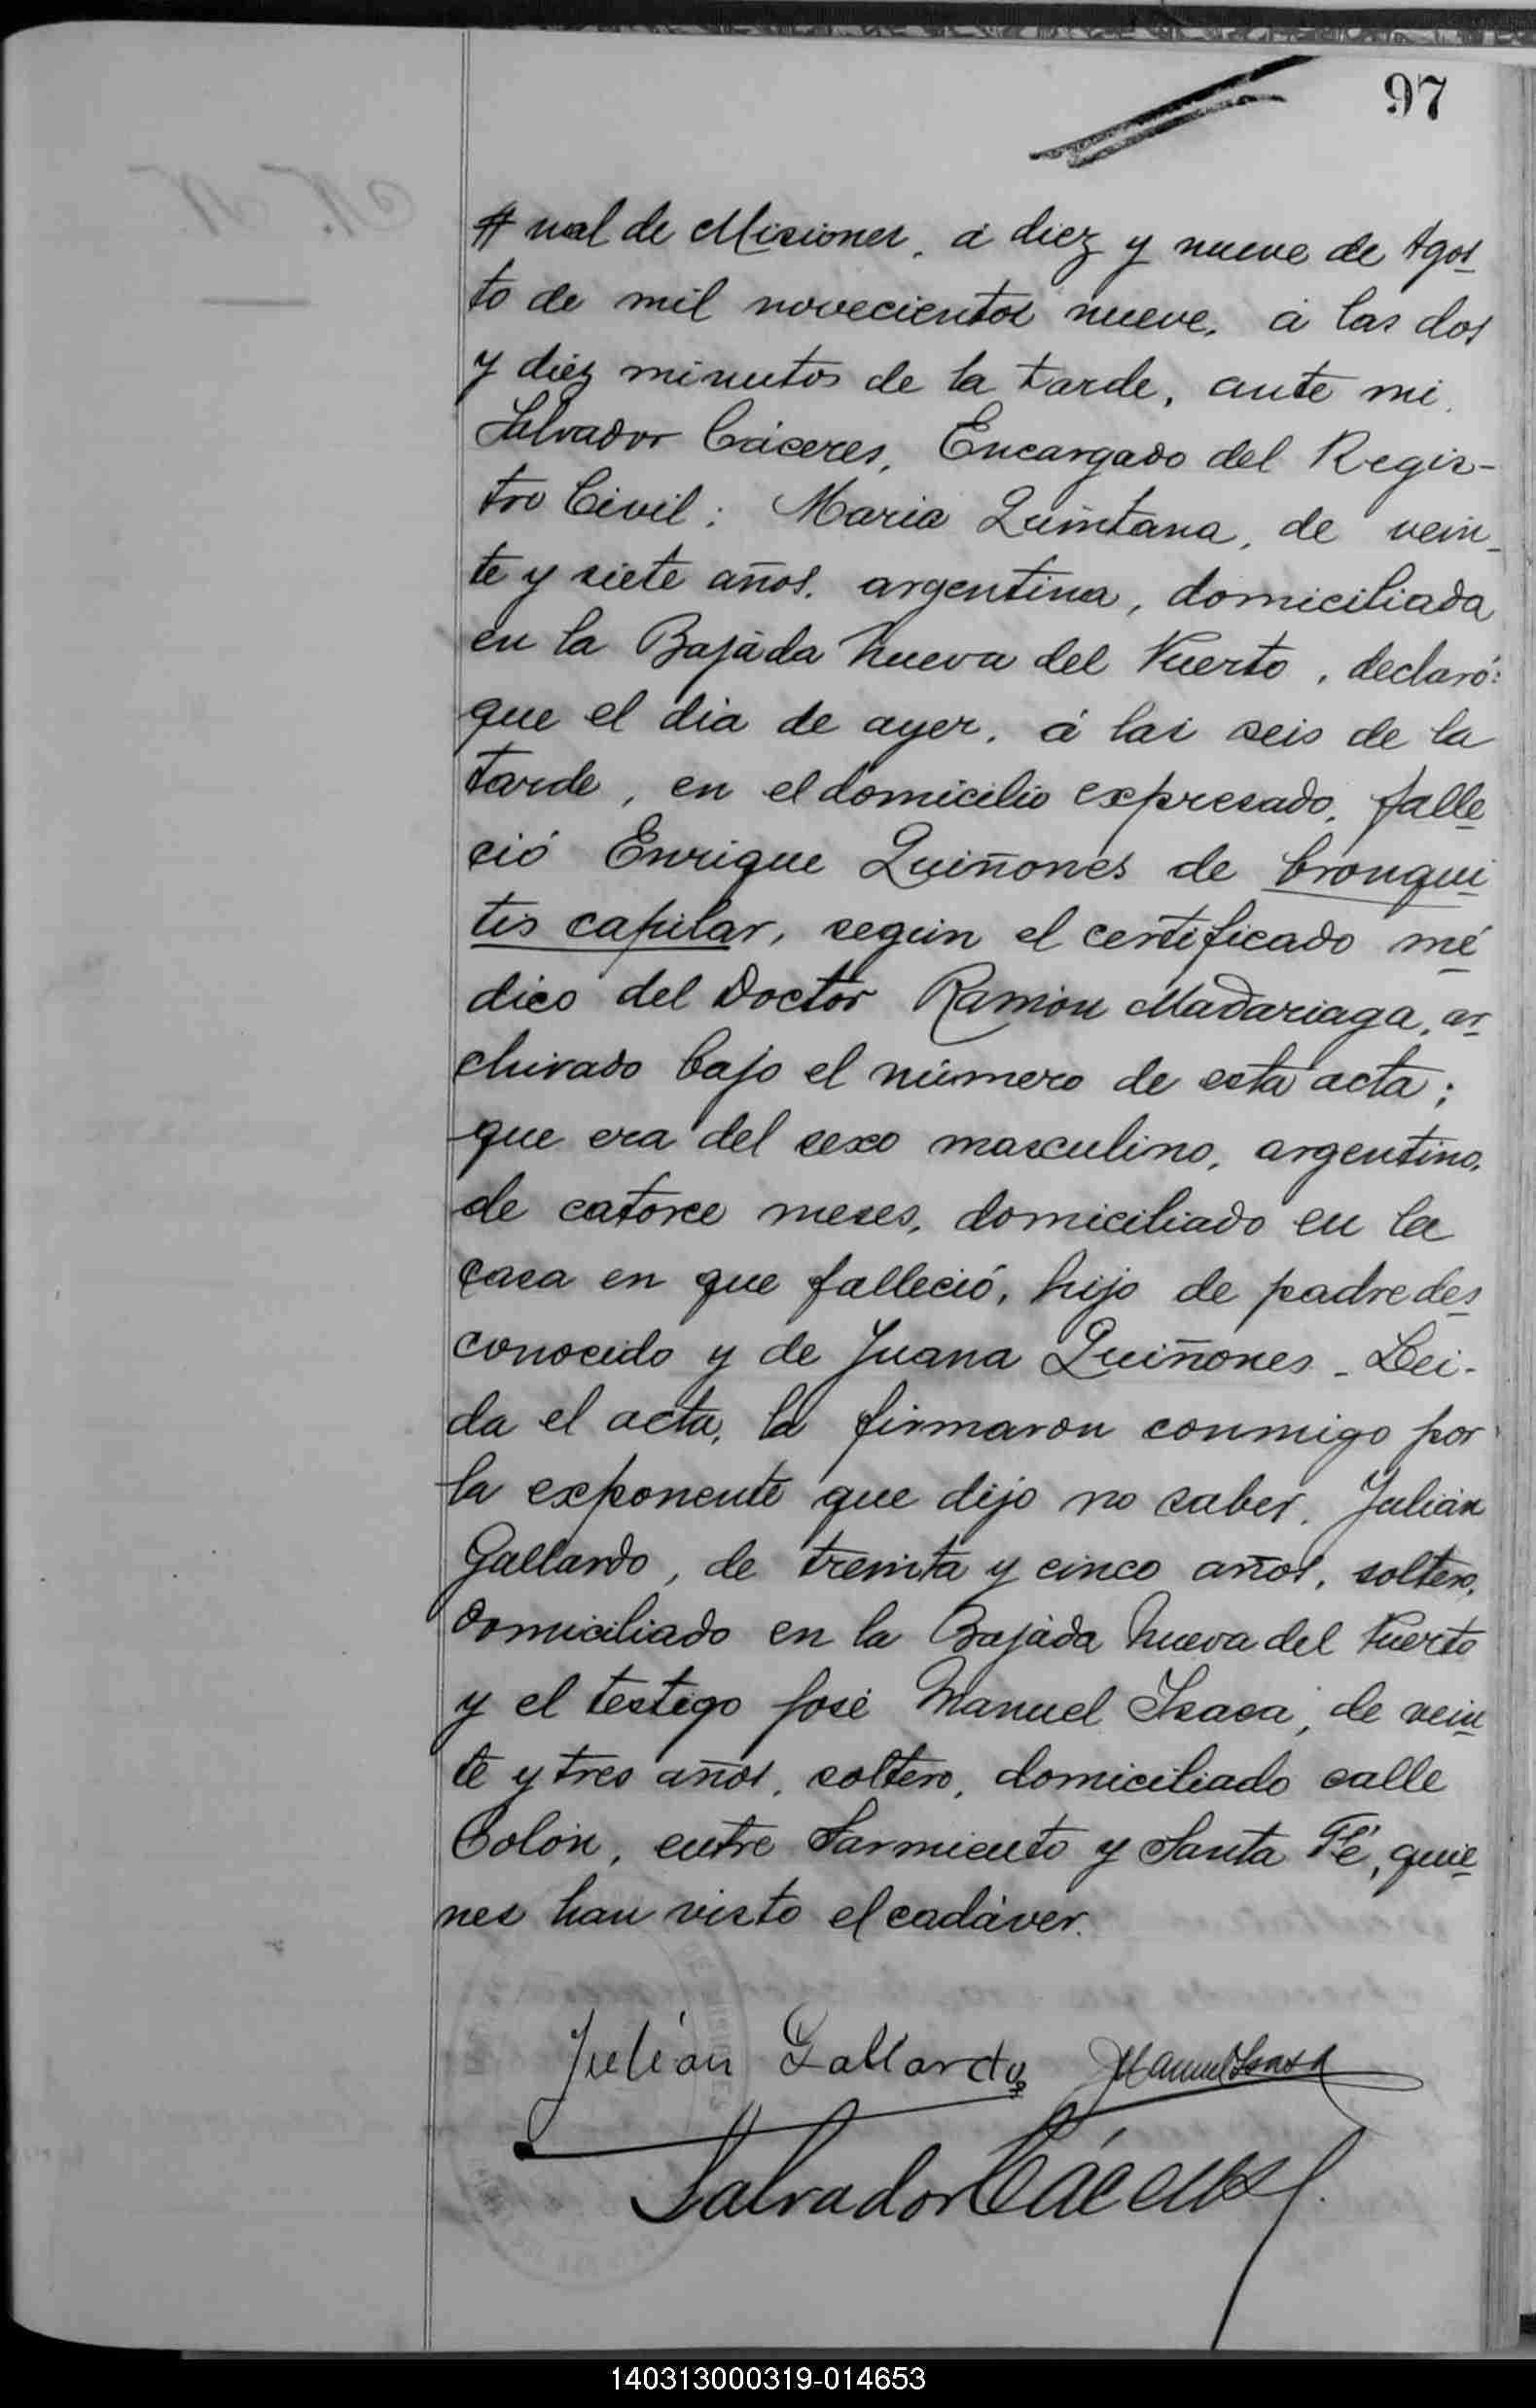 97
nal de Misiones, á diez y nueve de Agos_
to de mil novecientos nueve, á las dos
y diez minutos de la tarde, ante mi,
Salvador Cáceres, Encargado del Regis-
tro Civil: Maria Quintana, de vein_
te y siete años, argentina, domiciliada
en la Bajada Nueva del Puerto, declaró:
que el dia de ayer, á las seis de la
tarde, en el domicilio expresado, falle
ció Enrique Quiñones de bronqui
tis capilar, según el certificado mé
dico del Doctor Ramón Madariaga, ar
chivado bajo el número de esta acta;
que era del sexo masculino, argentino,
de catorce meses, domiciliado en la
casa en que falleció, hijo de padre des
conocido y de Juana Quiñones_ Lei-
da el acta, la firmaron conmigo por
la exponente que dijo no saber, Julián
Gallardo, de treinta y cinco años, soltero,
domiciliado en la Bajada Nueva del Puerto
y el testigo José Manuel Isasa, de vein
te y tres años, soltero, domiciliado calle
Colón, entre Sarmiento y Santa Fé, quie
nes han visto el cadáver.
Julián Gallardo JManuel Isasa
Salvador Cáceres
140313000319-014653